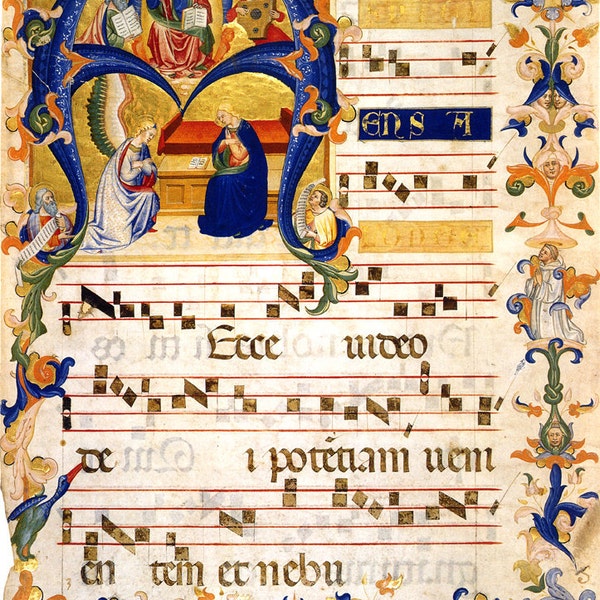 ENS A
Ecce video
de i potētiam veni
en tem et nebu